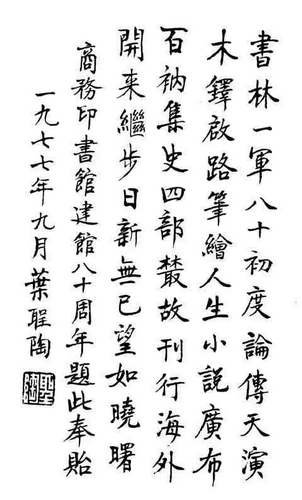 書林一軍八十初度論傳天演
木鐸啟路筆繪人生小說廣布
百衲集史四部叢故刊行海外
開来繼步日新無已望如曉曙
商務印書館建館八十周年題此奉貽
一九七七年九月葉聖陶